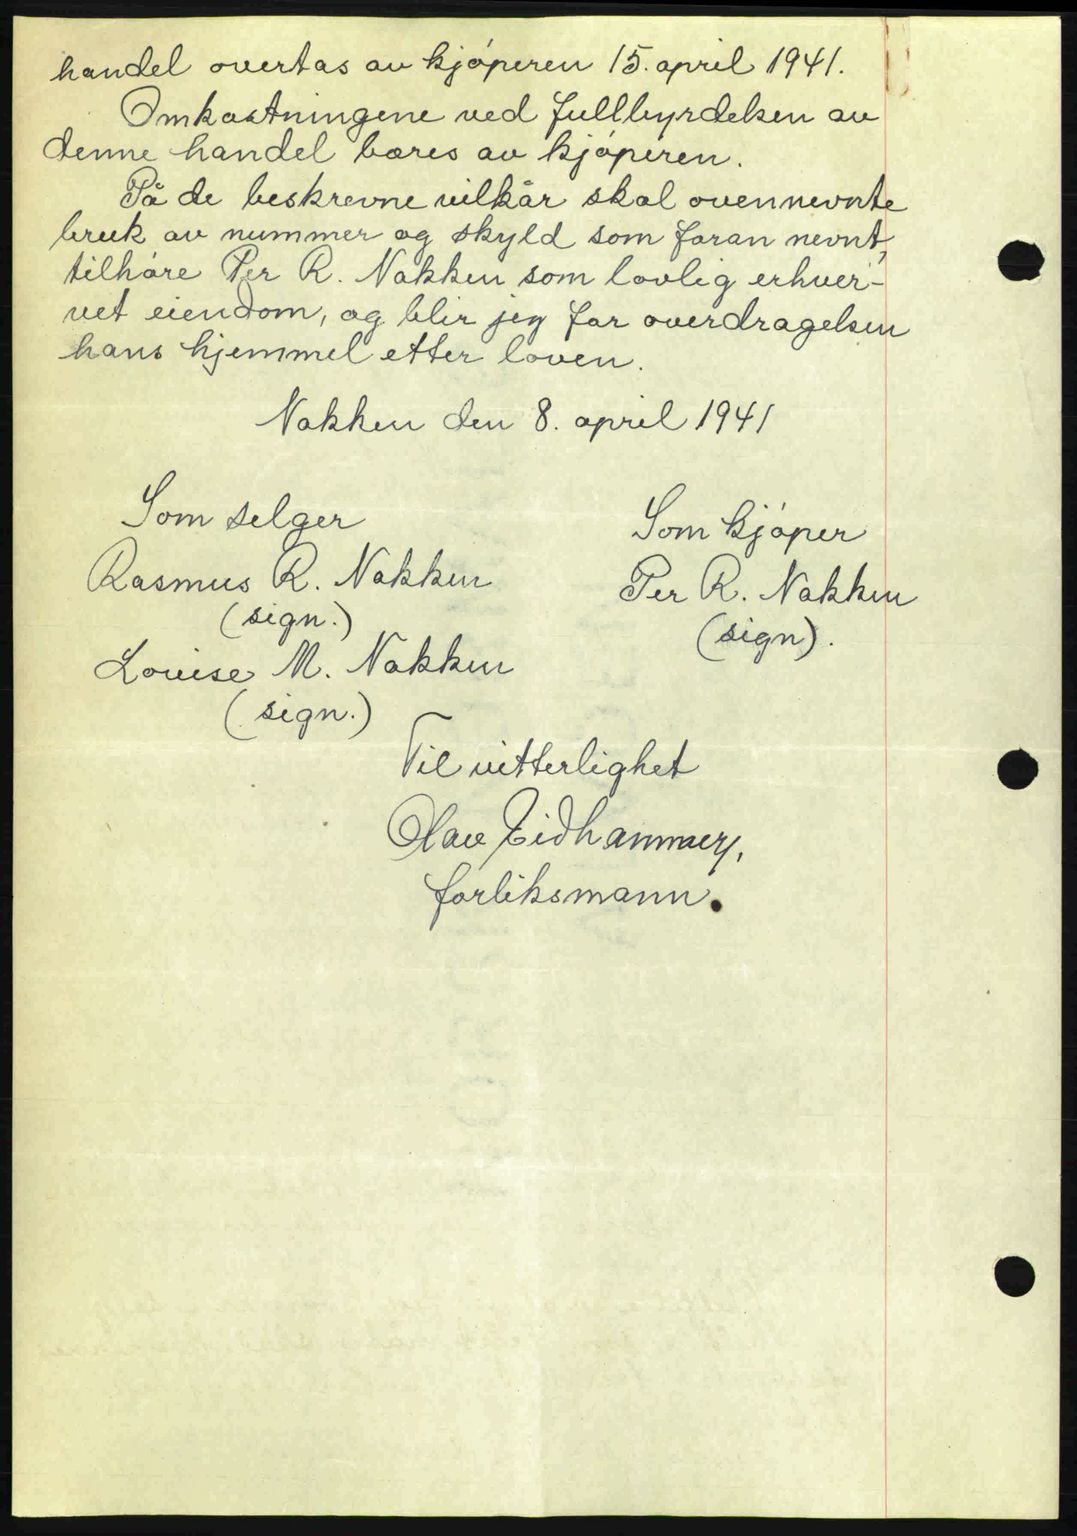 handel overtas av kjóperen 15. april 1941.
Omkostningene ved fullbyrdelsen av
denne handel bæres av kjóperen.
På de beskrevne vilkår skal ovennevnte
bruk av nummer og skyld som foran nevnt,
tilhóre Per R. Nakken som lovlig erhver-
vet eiendom, og blir jeg for overdragelsen
hans hjemmel etter loven.
Nakken den 8. april 1941
Som selger
Rasmus R. Nakken
(sign.)
Louise M. Nakken
(sign.)
Som kjóper
Per R. Nakken
(sign).
Til vitterlighet
Olav Eidhammer,
forliksmann.